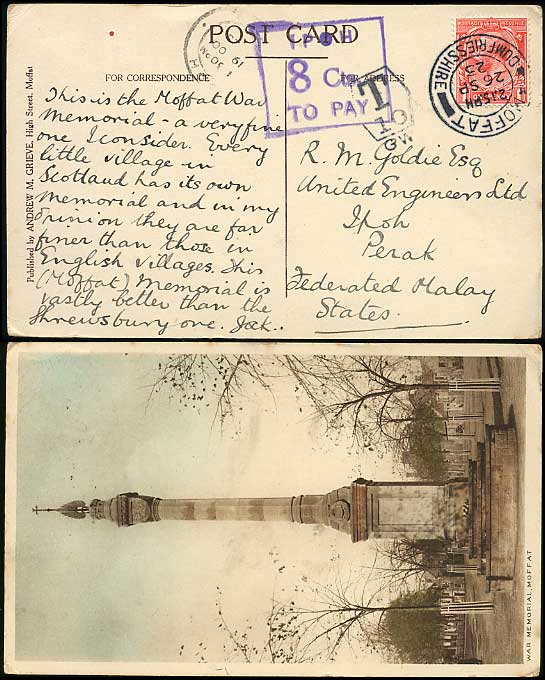 POST CARD
FOR CORRESPONDENCE
FOR ADDRESS
IPOH
8 Cts
TO PAY
T
10
MOFFAT
2.15 PM
26 SP
23
DUMFRIESSHIRE
This is the Moffat War
Memorial - a very fine
one I consider. Every
little village in
Scotland has its own
Memorial and in my
opinion they are far
finer than those in
English villages. This
(Moffat) Memorial is
vastly better than the
Shrewsbury one. Jock..
R. M. Goldie Esq
United Engineers Ltd
Ipoh
Perak
Federated Malay
States.
Published by ANDREW M. GRIEVE, High Street, Moffat
WAR MEMORIAL, MOFFAT